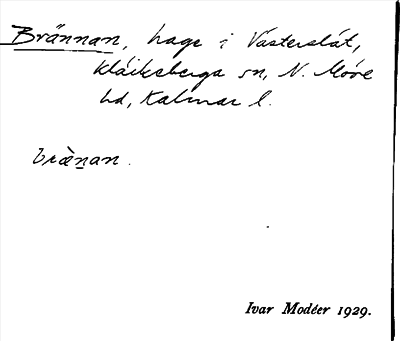 Brännan, hage i Västerslät,
Kläckeberga sn, N. Möre
hd, Kalmar l.
bræ̀nan.
Ivar Modéer 1929.